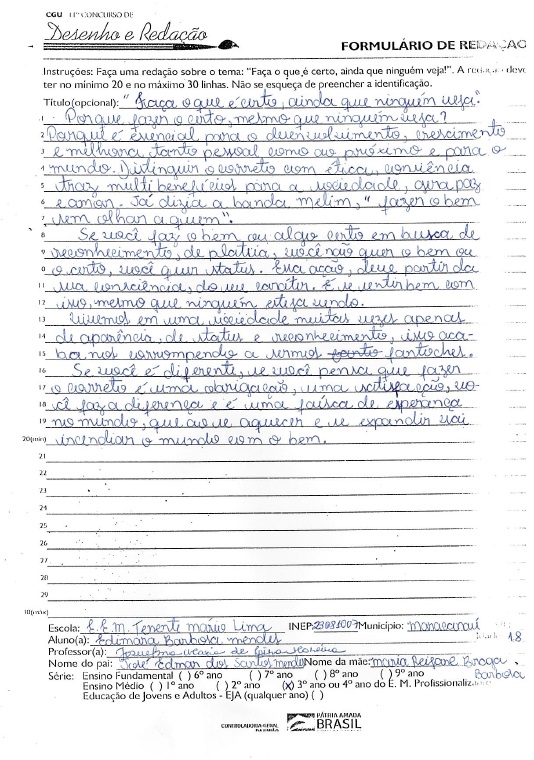 CGU 11º CONCURSO DE
Desenho e Redação
FORMULÁRIO DE REDAÇÃO
Instruções: Faça uma redação sobre o tema: "Faça o que é certo, ainda que ninguém veja!". A redação deve
ter no mínimo 20 e no máximo 30 linhas. Não se esqueça de preencher a identificação.
Título(opcional): "Faça o que é certo, ainda que ninguém veja."
1 Porque fazer o certo, mesmo que ninguém veja?
2 Porque é esencial para o desenvolvimento, crescimento
3 e melhora, tanto pessoal como ao próximo e para o
4 mundo. Distinguir o correto com ética, conciência
5 traz multi benefícios para a sociedade, gera paz
6 e amor. Já dizia a banda melim, "fazer o bem
7 sem olhar a quem".
8 Se você faz o bem ou algo certo em busca de
9 reconhecimento, de platéia, você não quer o bem ou
0 o certo, você quer status. Essa ação, deve partir da
11 sua consciência, do seu carater. E se sentir bem com
12 isso, mesmo que ninguém esteja vendo.
13 Vivemos em uma sociedade muitas vezes apenas
14 de aparência, de status e reconhecimento, isso aca-
15 ba nos corrompendo a sermos fantoches.
16 Se você é diferente, se você pensa que fazer
17 o correto é uma obrigação, uma satisfação, vo-
18 cê faz a diferença e é uma faísca de esperança
19 no mundo, que ao se aquecer e se expandir vai
20(min) incendiar o mundo com o bem.
21
22
23
24
25
26
27
28
29
30(máx)
Escola: E.E.M. Tenente mário Lima INEP: 23081007 Município: Maracanaú
Aluno(a): Edimara Barbosa mendes Idade 18
Professor(a): Josuefina Maria de
Nome do pai: José Edmar dos Santos mendes Nome da mãe: maria Reijane Braga
Barbosa
Série: Ensino Fundamental ( ) 6º ano ( ) 7º ano ( ) 8º ano ( ) 9º ano
Ensino Médio ( ) 1º ano ( ) 2º ano (x) 3º ano ou 4º ano do E. M. Profissionaliz.
Educação de Jovens e Adultos - EJA (qualquer ano) ( )
CONTROLADORIA-GERAL DA UNIÃO
PÁTRIA AMADA
BRASIL